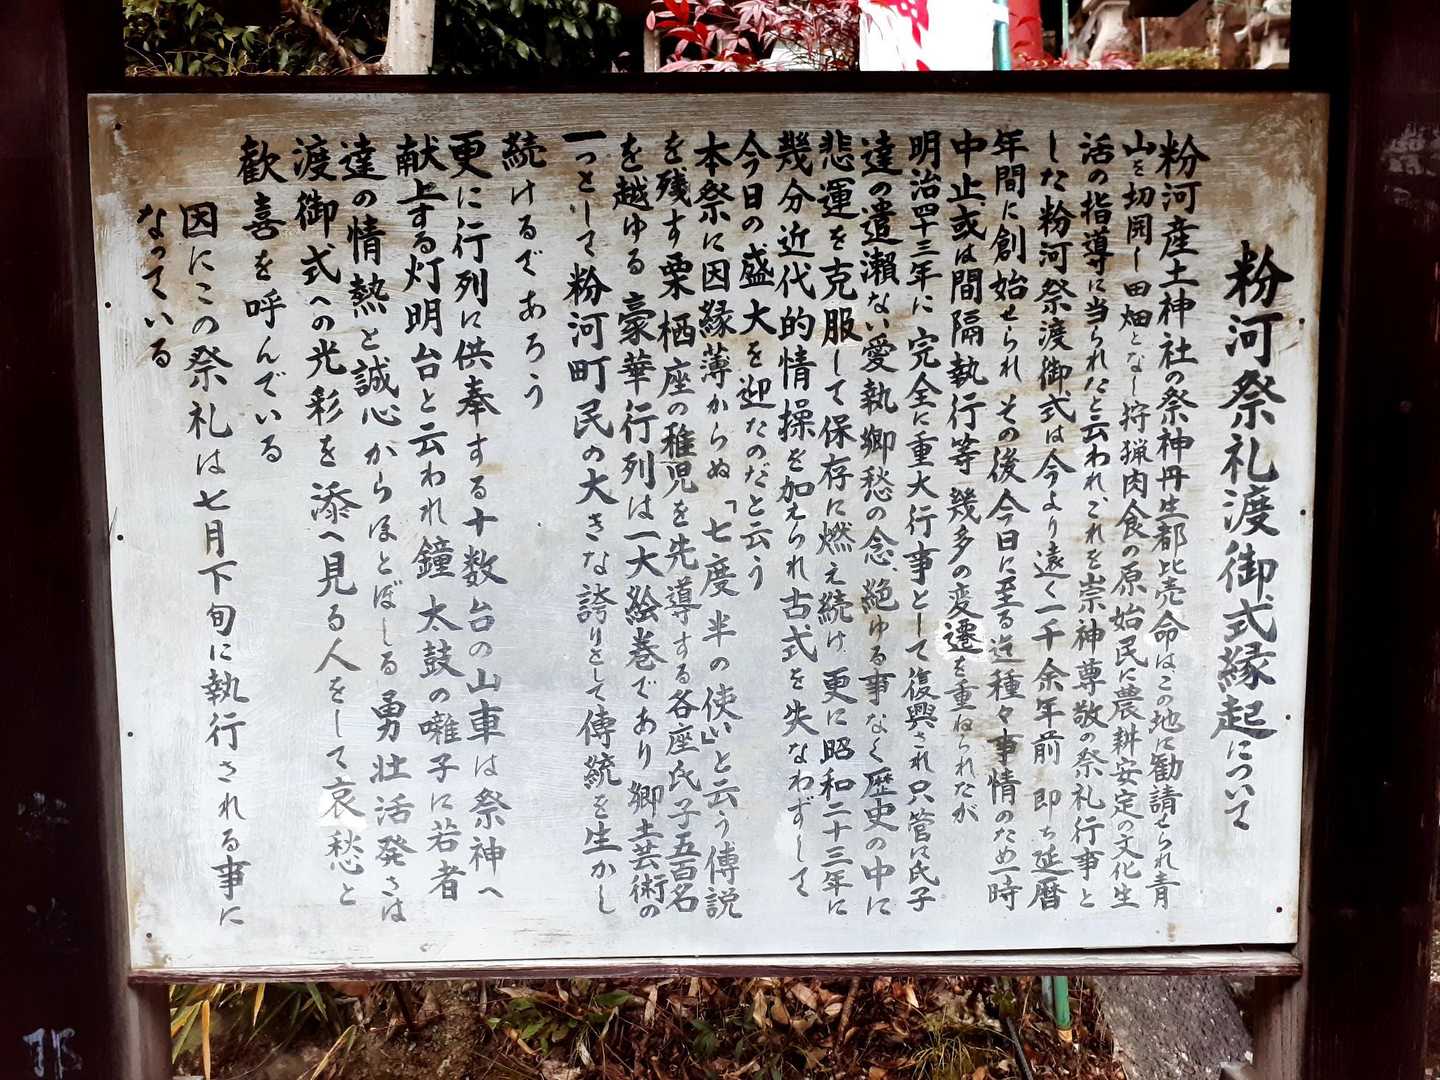 粉河祭礼渡御式縁起について
粉河産土神社の祭神丹生都比売命はこの地に勧請せられ青
山を切開し田畑となし狩猟肉食の原始民に農耕安定の文化生
活の指導に当られたと云われ、これを崇神尊敬の祭礼行事と
した粉河祭渡御式は今より遠く一千余年前即ち延暦
年間に創始せられ その後今日に至る迄種々事情のため一時
中止或は間隔執行等 幾多の変遷を重ねられたが
明治四十三年に完全に重大行事として復興され只管に氏子
達の遣瀬ない愛執郷愁の念絶ゆる事なく歴史の中に
悲運を克服して保存に燃え続け 更に昭和二十三年に
幾分近代的情操を加えられ古式を失なわずして
今日の盛大を迎たのだと云う
本祭に因縁薄からぬ「七度半の使い」と云う傳説
を残す栗栖座の稚児を先導する各座氏子五百名
を越ゆる豪華行列は一大絵巻であり郷土芸術の
一つとして粉河町民の大きな誇りとして傳統を生かし
続けるであろう
更に行列に供奉する十数台の山車は祭神へ
献上する灯明台と云われ鐘太鼓の囃子に若者
達の情熱と誠心からほとばしる勇壮活発さは
渡御式への光彩を添へ見る人をして哀愁と
歓喜を呼んでいる
因にこの祭礼は七月下旬に執行される事に
なっている